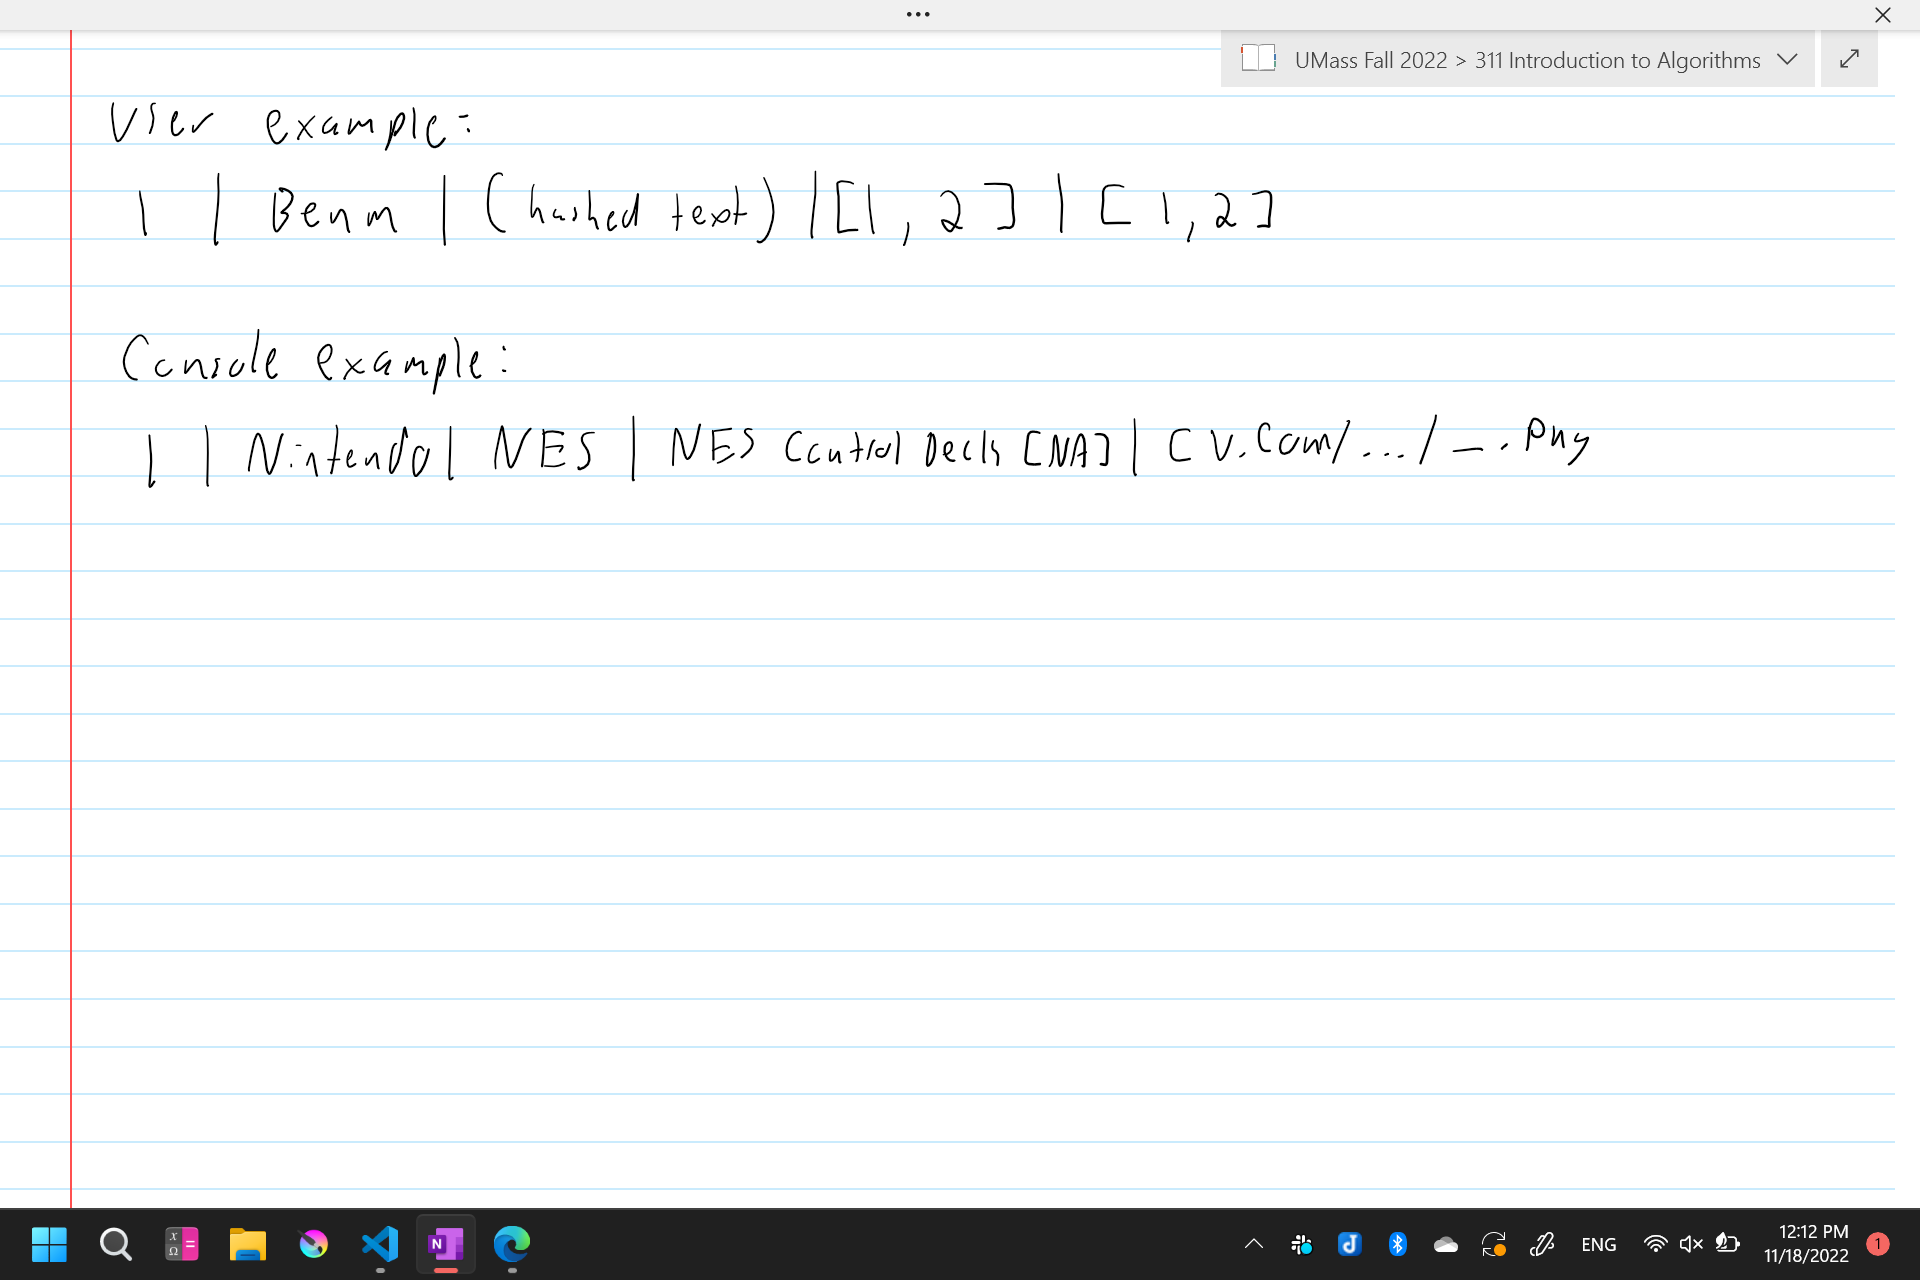 UMass Fall 2022 > 311 Introduction to Algorithms
User example:
1 | Benm | (hashed text) | [1, 2] | [1, 2]
Console example:
1 | Nintendo | NES | NES Control Deck [NA] | CV.com/.../_.png
ENG
12:12 PM
11/18/2022
1